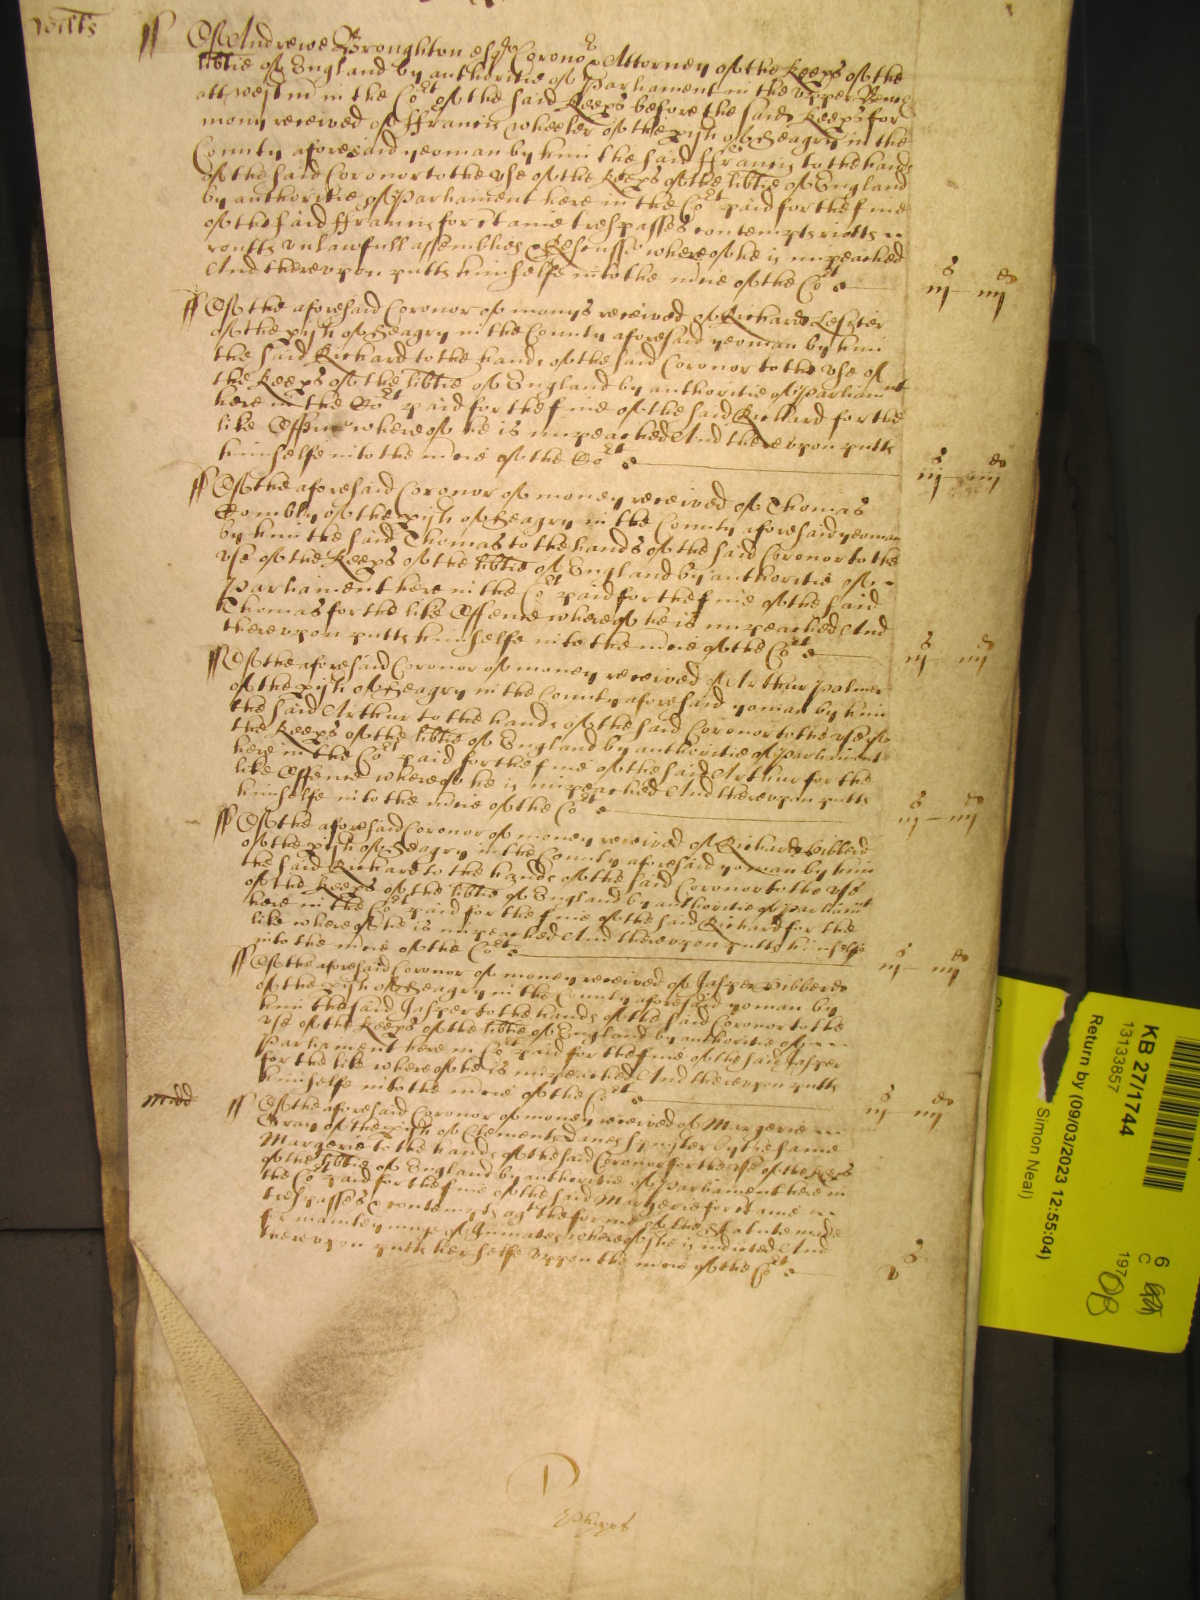 Wilts
Of Andrewe Broughton esqr Coronor & Attorney of the Keeps of the
libtie of England by authoritie of Parliament in the upper Bench
att Westm in the Cort of the said Keeps before the said Keeps for
mony received of ffrancis Wheeler of the pish of Seagry in the
County aforesaid yeoman by him the said ffrancis to the hands
of the said Coronor to the use of the Keeps of the libtie of England
by authoritie of Parliament here in the Cort paid for the fine
of the said ffrancis for ctaine trespasses contempts riotts
routts unlawfull assemblies & whereof he is impeached
And thereupon putts himselfe into the mcie of the Cort
iijs iiijd
Of the aforesaid Coronor of monys received of Richard Lessiter
of the pish of Seagry in the County aforesaid yeoman by him
the said Richard to the hands of the said Coronor to the use of
the Keeps of the libtie of England by authoritie of Parliamt
here in the Cort paid for the fine of the said Richard for the
like Offence whereof he is impeached And thereupon putts
himselfe into the mcie of the Cort
iijs iiijd
Of the aforesaid Coronor of money received of Thomas
of the pish of Seagry in the County aforesaid yeoman
by him the said Thomas to the hands of the said Coronor to the
use of the Keeps of the libtie of England by authoritie of
Parliament here in the Cort paid for the fine of the said
Thomas for the like Offence whereof he is impeached And
thereupon putts himselfe into the mcie of the Cort
iijs iiijd
Of the aforesaid Coronor of money received of Arthur Palmer
of the pish of Seagry in the County aforesaid yoman by him
the said Arthur to the hands of the said Coronor to the use of
the Keeps of the libtie of England by authoritie of Parliament
here in the Cort paid for the fine of the said Arthur for the
like Offence whereof he is impeached And thereupon putts
himselfe into the mcie of the Cort
iijs iiijd
Of the aforesaid Coronor of money received of Richard
of the pish of Seagry in the County aforesaid yoman by him
the said Richard to the hands of the said Coronor to the use
of the Keeps of the libtie of England by authoritie of Parliamt
here in the Cort paid for the fine of the said Richard for the
like whereof he is impeached And thereupon putts himselfe
into the mcie of the Cort
iijs iiijd
Of the aforesaid Coronor of money received of Jasper
of the pish of Seagry in the County aforesaid yoman by
him the said Jasper to the hands of the said Coronor to the
use of the Keeps of the libtie of England by authoritie of
Parliament here in Cort paid for the fine of the said Jasper
for the like whereof he is impeached And thereupon putts
himselfe into the mcie of the Cort
iijs iiijd
Midd
Of the aforesaid Coronor of money received of Margerie
Gray of the pish of Clements Danes Spinster by the same
Margerie to the hands of the said Coronor for the use of the Keeps
of the libtie of England by authoritie of Parliament here in
the Cort paid for the fine of the said Margerie for ctaine
trespasses & contempts agt the forme of the Statute made
for mainteyninge of Inmates whereof she is indicted And
thereupon putts her selfe uppon the mcie of the Cort
vs
KB 27/1744
13133857
Return by (09/03/2023 12:55:04)
Simon Neal)
6
C
197